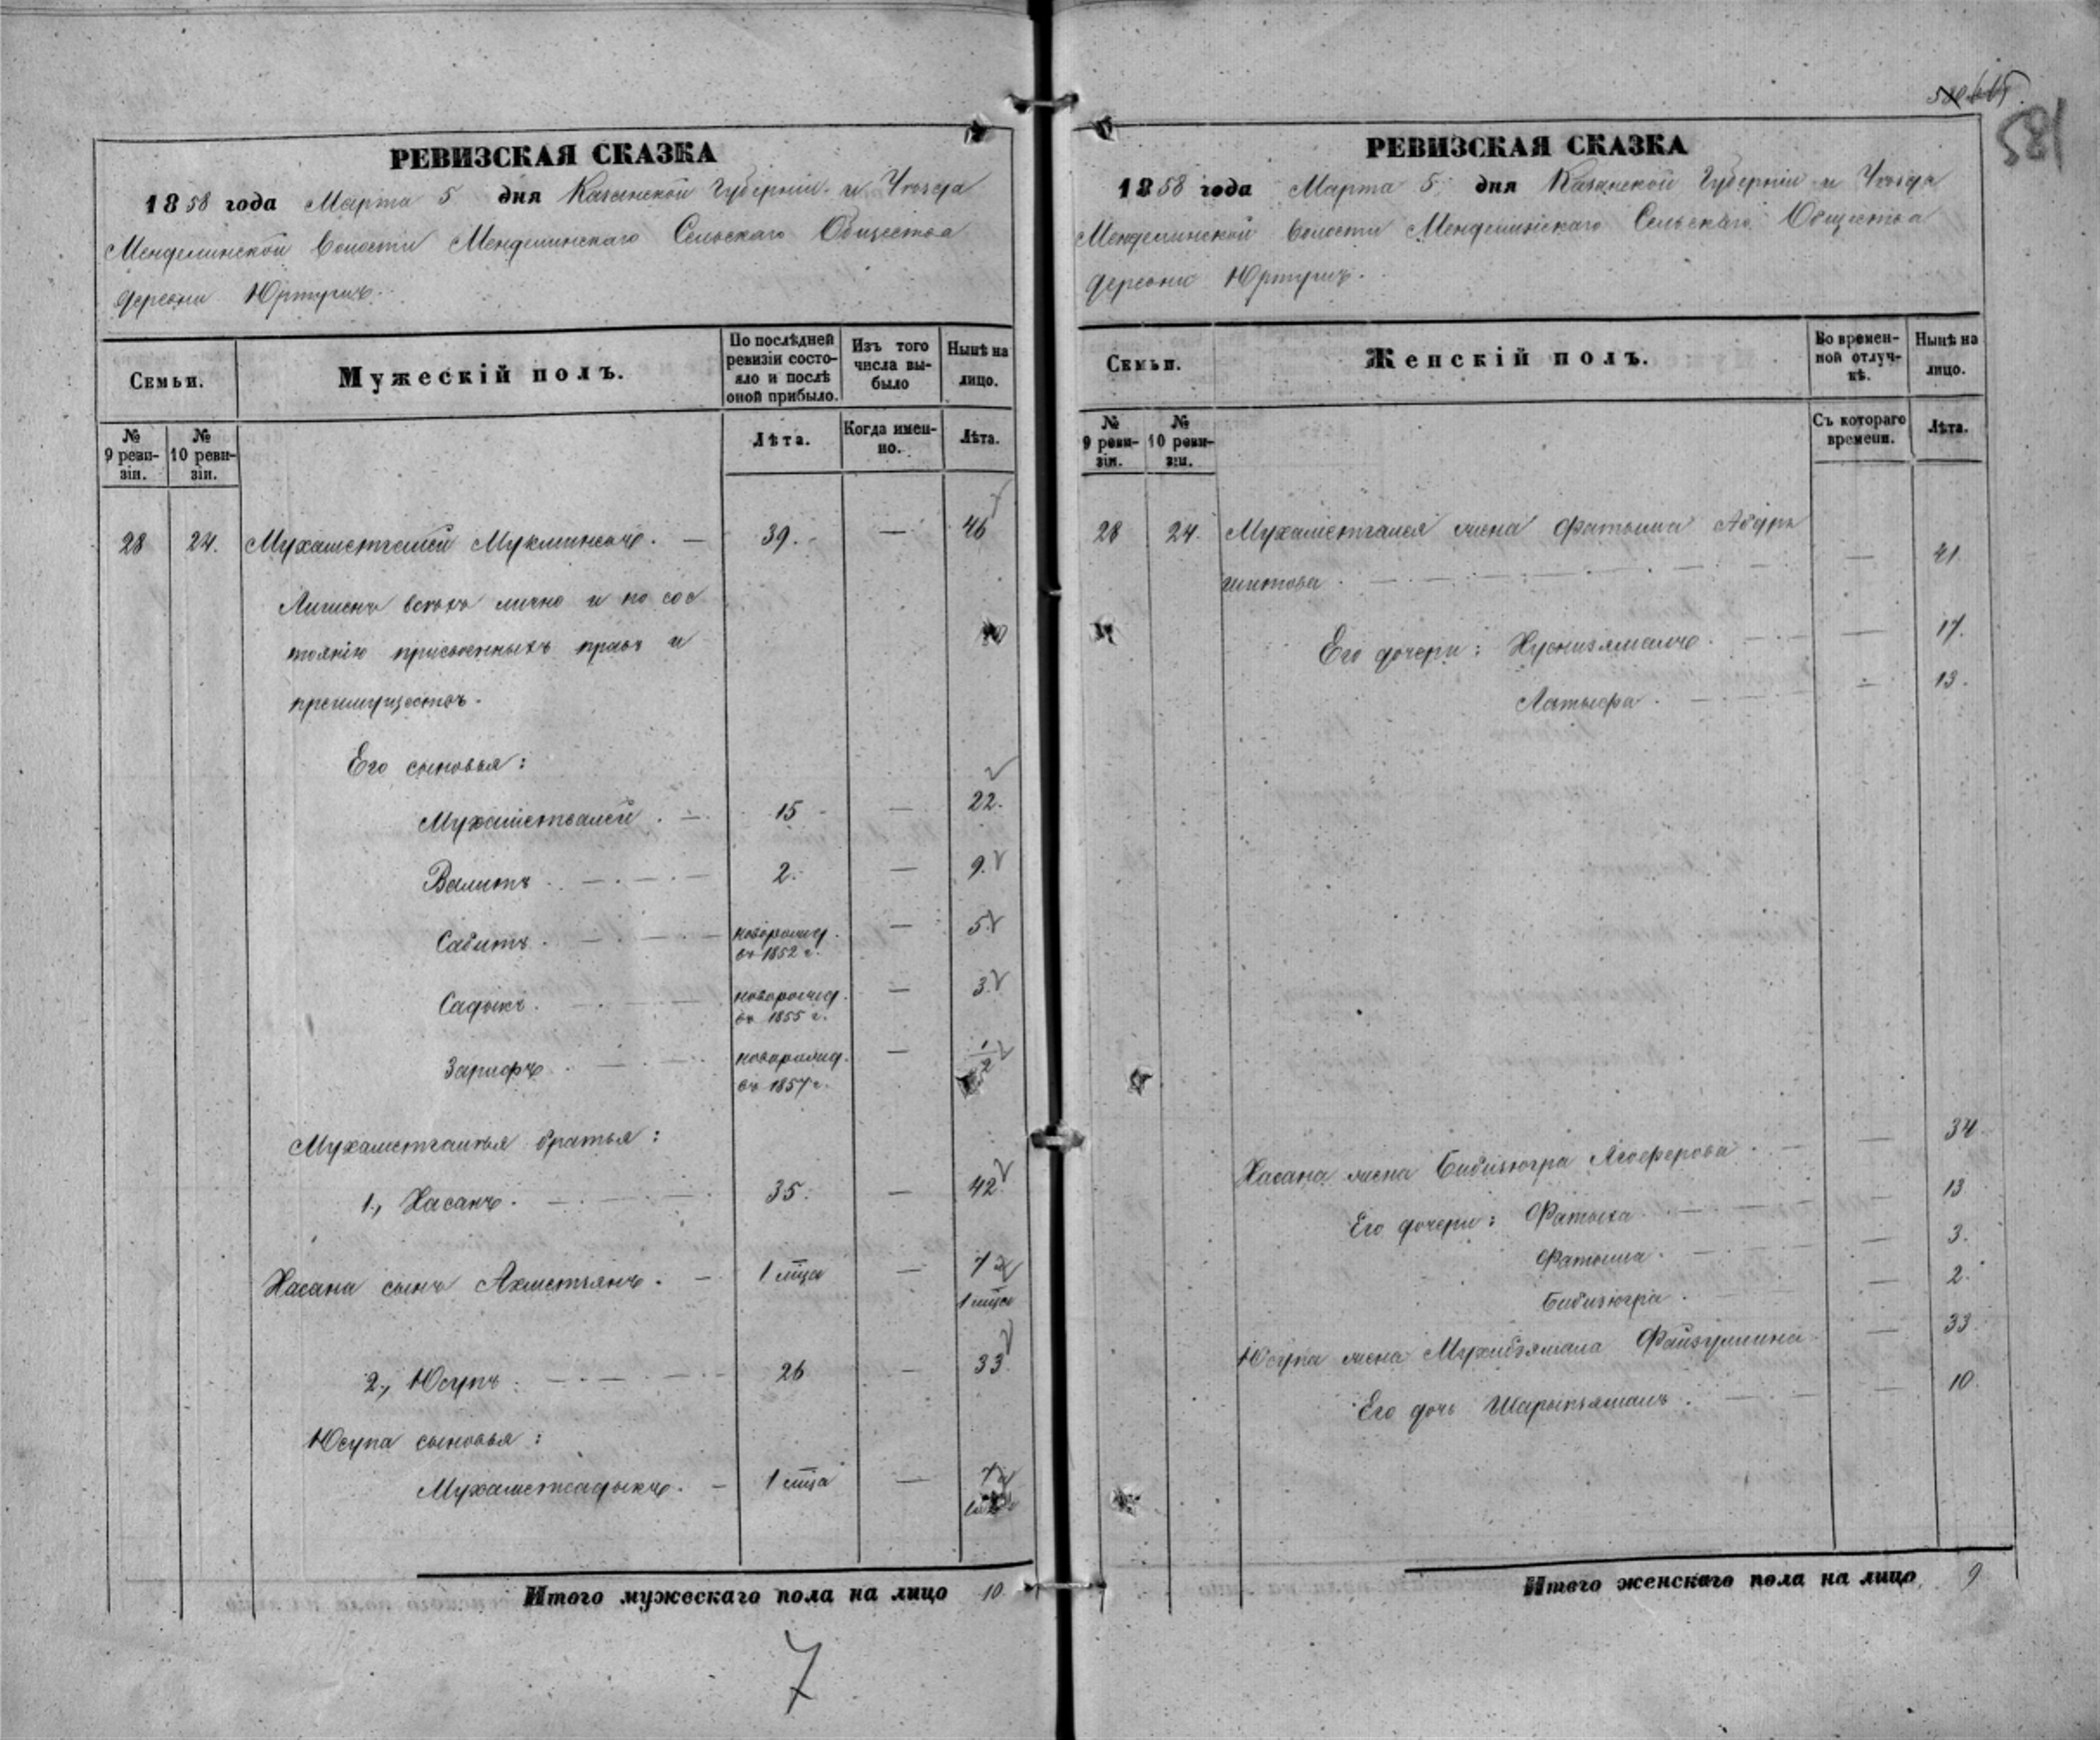 581
РЕВИЗСКАЯ СКАЗКА
1858 года Марта 5 дня Казанской Губернiи и Уѣзда
Менделинской Волости Менделинскаго Сельскаго Общества
деревни Юртушъ.
Семьи.
Мужескiй полъ.
По послѣдней ревизiи состо-
яло и послѣ
оной прибыло.
Изъ того
числа вы-
было
Нынѣ на
лицо.
№
9 реви-
зiи.
№
10 реви-
зiи.
Лѣта.
Когда имен-
но.
Лѣта.
28 24. Мухаметгалей Мукминовъ. — 39. — 46
Лишенъ всѣхъ лично и по сос
тоянiю присвоенныхъ правъ и
преимуществъ.
Его сыновья:
Мухаметвалей. — 15 — 22.
Валитъ. — 2. — 9.
Сабитъ. — новорожд. въ 1852 г. — 5.
Садыкъ. — новорожд. въ 1855 г. — 3.
Зарифъ. — новорожд. въ 1857 г. — 1/2
Мухаметгалѣя братья:
1., Хасанъ. — 35. — 42.
Хасана сынъ Ахметзянъ. — 1 мца — 7 1 мца
2., Юсупъ. — 26 — 33.
Юсупа сыновья:
Мухаметсадыкъ. — 1 мца — 7
Итого мужескаго пола на лицо 10.
7
РЕВИЗСКАЯ СКАЗКА
1858 года Марта 5 дня Казанской Губернiи и Уѣзда
Менделинской Волости Менделинскаго Сельскаго Общества
деревни Юртушъ.
Семьи.
Женскiй полъ.
Во времен-
ной отлуч-
кѣ.
Нынѣ на
лицо.
№
9 реви-
зiи.
№
10 реви-
зiи.
Съ котораго
времени.
Лѣта.
28 24. Мухаметгалея жена Фатыма Абдръ
шитова. — — 41.
Его дочери: Хуснизямалъ. — 17.
Латыфа. — 13.
Хасана жена Бибизюгра Ягоферова. — 34
Его дочери: Фатыха — 13
Фатыма. — 3.
Бибизюгра. — 2.
Юсупа жена Мухибзямала Файзуллина — 33
Его дочь Шарыпзямалъ. — 10.
Итого женскаго пола на лицо 9